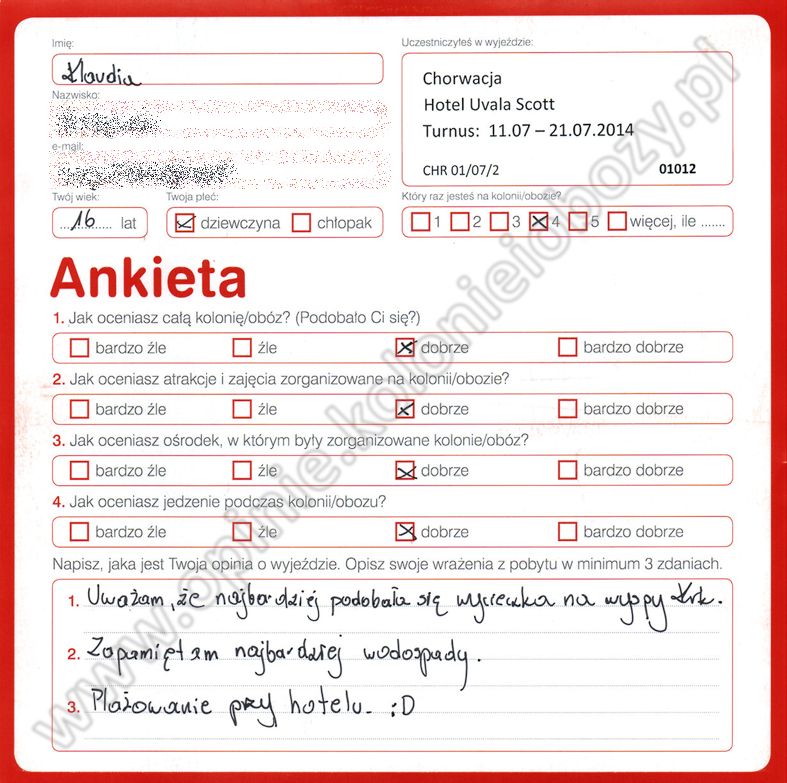 Imię:
Klaudia
Nazwisko:
e-mail:
Twój wiek:
16 lat
Twoja płeć:
dziewczyna chłopak
Uczestniczyłeś w wyjeździe:
Chorwacja
Hotel Uvala Scott
Turnus: 11.07 – 21.07.2014
CHR 01/07/2 01012
Który raz jesteś na kolonii/obozie?
1 2 3 4 5 więcej, ile .......
Ankieta
1. Jak oceniasz całą kolonię/obóz? (Podobało Ci się?)
bardzo źle źle dobrze bardzo dobrze
2. Jak oceniasz atrakcje i zajęcia zorganizowane na kolonii/obozie?
bardzo źle źle dobrze bardzo dobrze
3. Jak oceniasz ośrodek, w którym były zorganizowane kolonie/obóz?
bardzo źle źle dobrze bardzo dobrze
4. Jak oceniasz jedzenie podczas kolonii/obozu?
bardzo źle źle dobrze bardzo dobrze
Napisz, jaka jest Twoja opinia o wyjeździe. Opisz swoje wrażenia z pobytu w minimum 3 zdaniach.
1. Uważam, że najbardziej podobała się wycieczka na wyspy Krk.
2. Zapamiętam najbardziej wodospady.
3. Plażowanie przy hotelu. :D
www.opinie.kolonieiobozy.pl